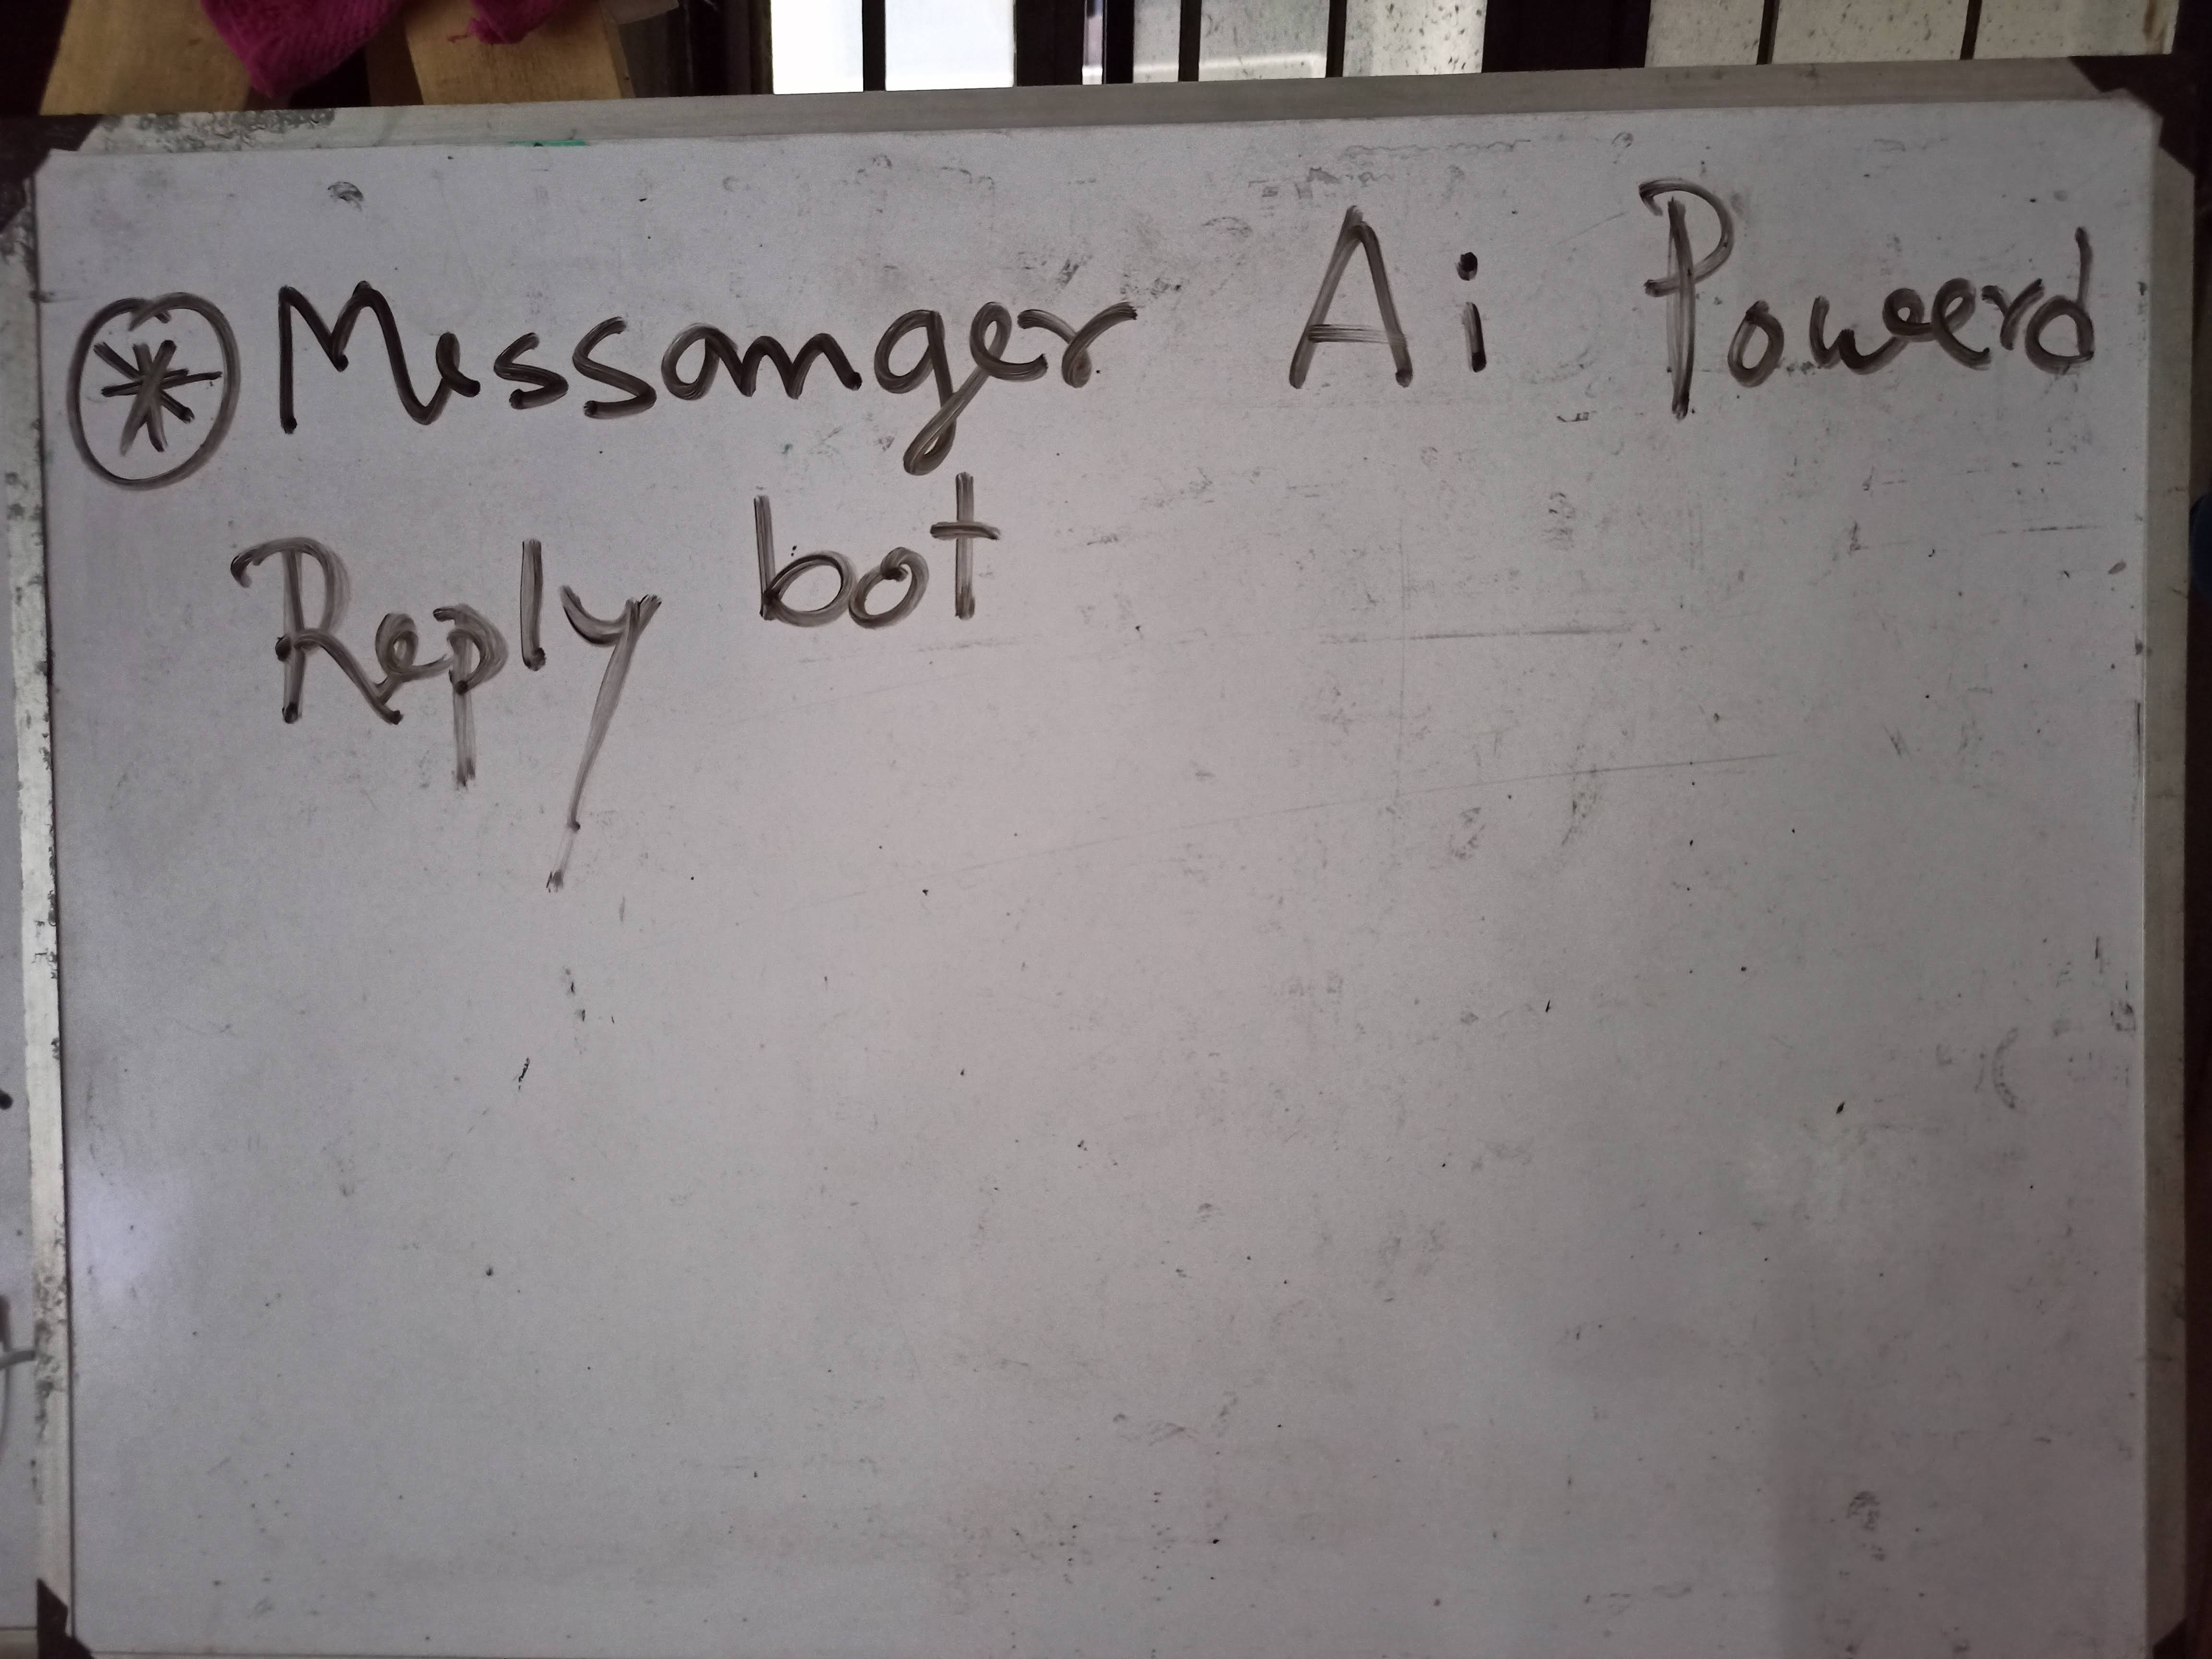 * Messanger Ai Poweerd
Reply bot